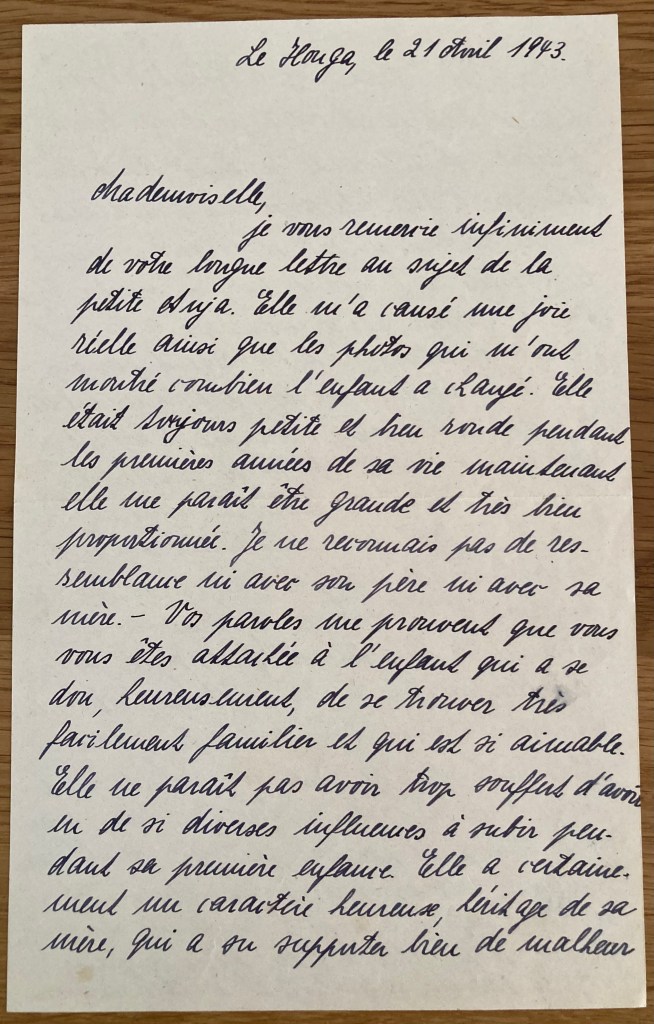 Le Houga, le 21 Avril 1943.
Mademoiselle,
je vous remercie infiniment
de votre longue lettre au sujet de la
petite Anja. Elle m'a causé une joie
réelle ainsi que les photos qui m'ont
montré combien l'enfant a changé. Elle
était toujours petite et bien ronde pendant
les premières années de sa vie maintenant
elle me paraît être grande et très bien
proportionnée. Je ne reconnais pas de res-
semblance ni avec son père ni avec sa
mère. - Vos paroles me prouvent que vous
vous êtes attachée à l'enfant qui a se
don, heureusement, de se trouver très
facilement familier et qui est si aimable.
Elle ne paraît pas avoir trop souffert d'avoir
eu de si diverses influences à subir pen-
dant sa première enfance. Elle a certaine-
ment un caractère heureuse, héritage de sa
mère, qui a su supporter bien de malheur